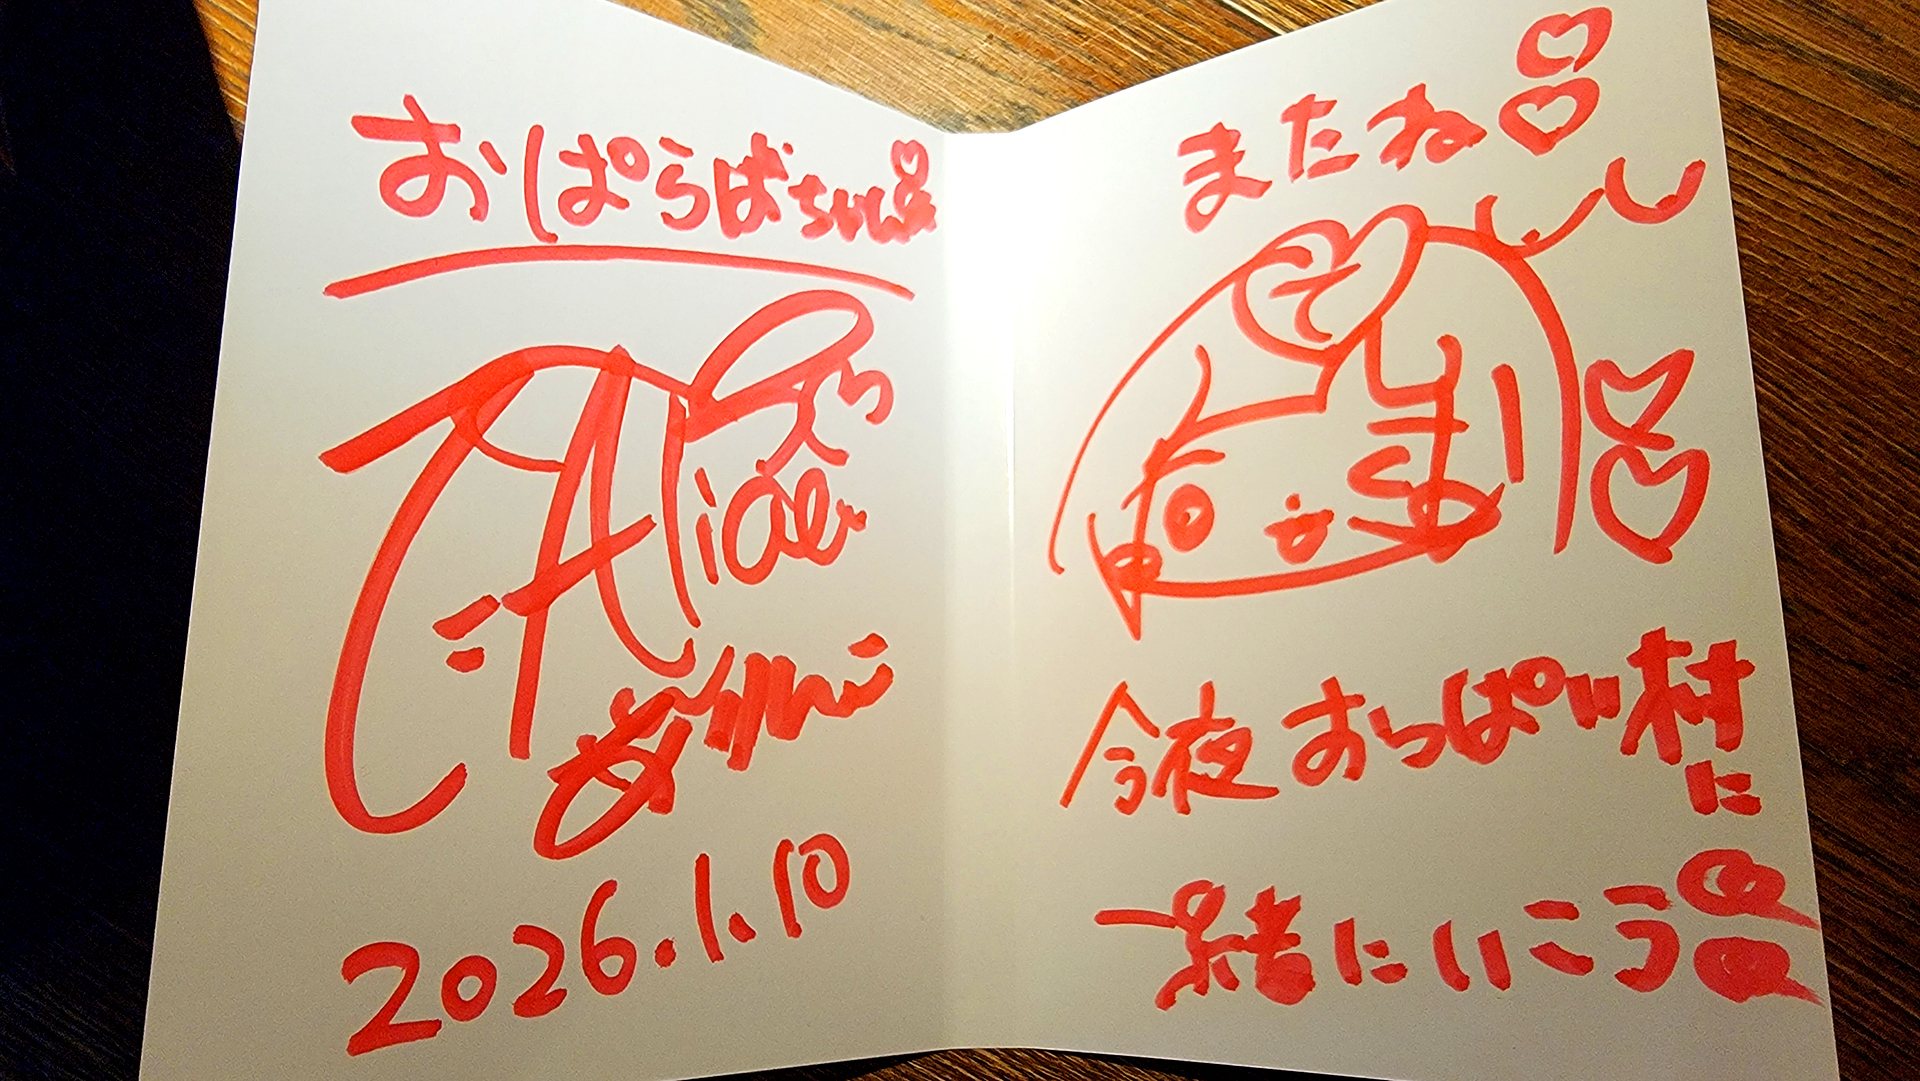 おぱらばちゃん
Alice
2026.1.10
またね
今夜おっぱい村に
一緒にいこう